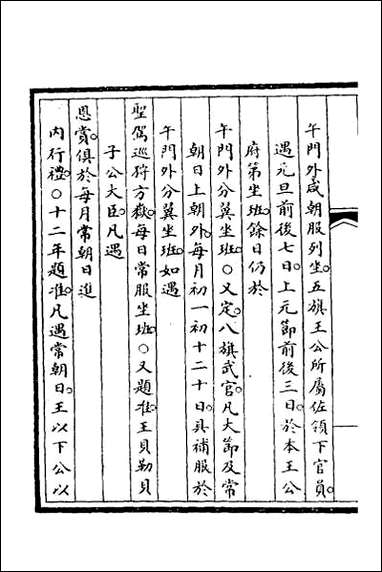 午門外咸朝服列坐。五旗王公所屬佐領下官員。
遇元旦前後七日。上元節前後三日。於本王公
府第坐班。餘日仍於
午門外分翼坐班。○又定。八旗武官。凡大節及常
朝日上朝外。每月初一初十二十日。具補服於
午門外分翼坐班。如遇
聖駕巡狩方嶽。每日常服坐班。○又題准。王貝勒貝
子公大臣。凡遇
恩賞。俱於每月常朝日進
內行禮。○十二年題准。凡遇常朝日。王以下公以